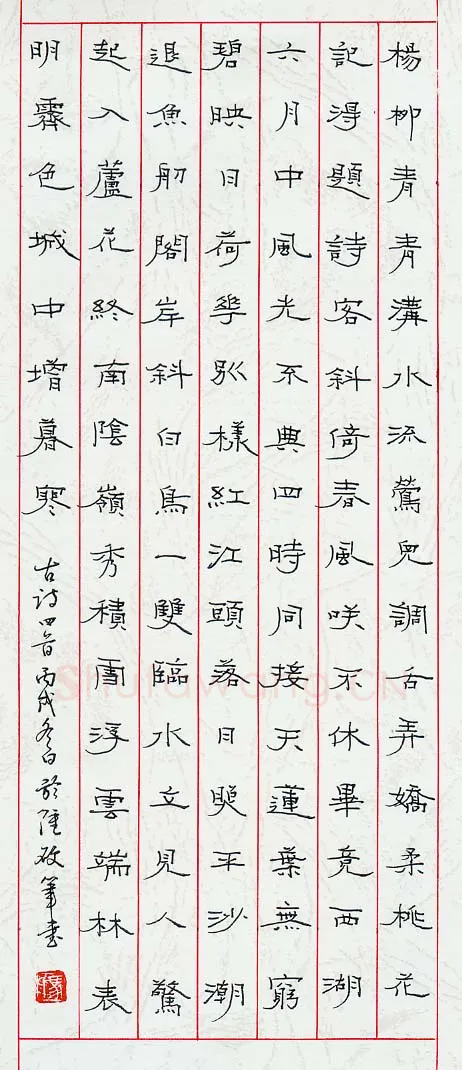 楊柳青青溝水流鶯兒調舌弄嬌柔桃花
記得題詩客斜倚春風咲不休畢竟西湖
六月中風光不與四時同接天蓮葉無窮
碧映日荷華別樣紅江頭落日照平沙潮
退魚舠閣岸斜白鳥一雙臨水立見人驚
起入蘆花終南陰嶺秀積雪浮雲端林表
明霽色城中增暮寒
古诗四首丙戌冬日於筆書
Shufawang.CN